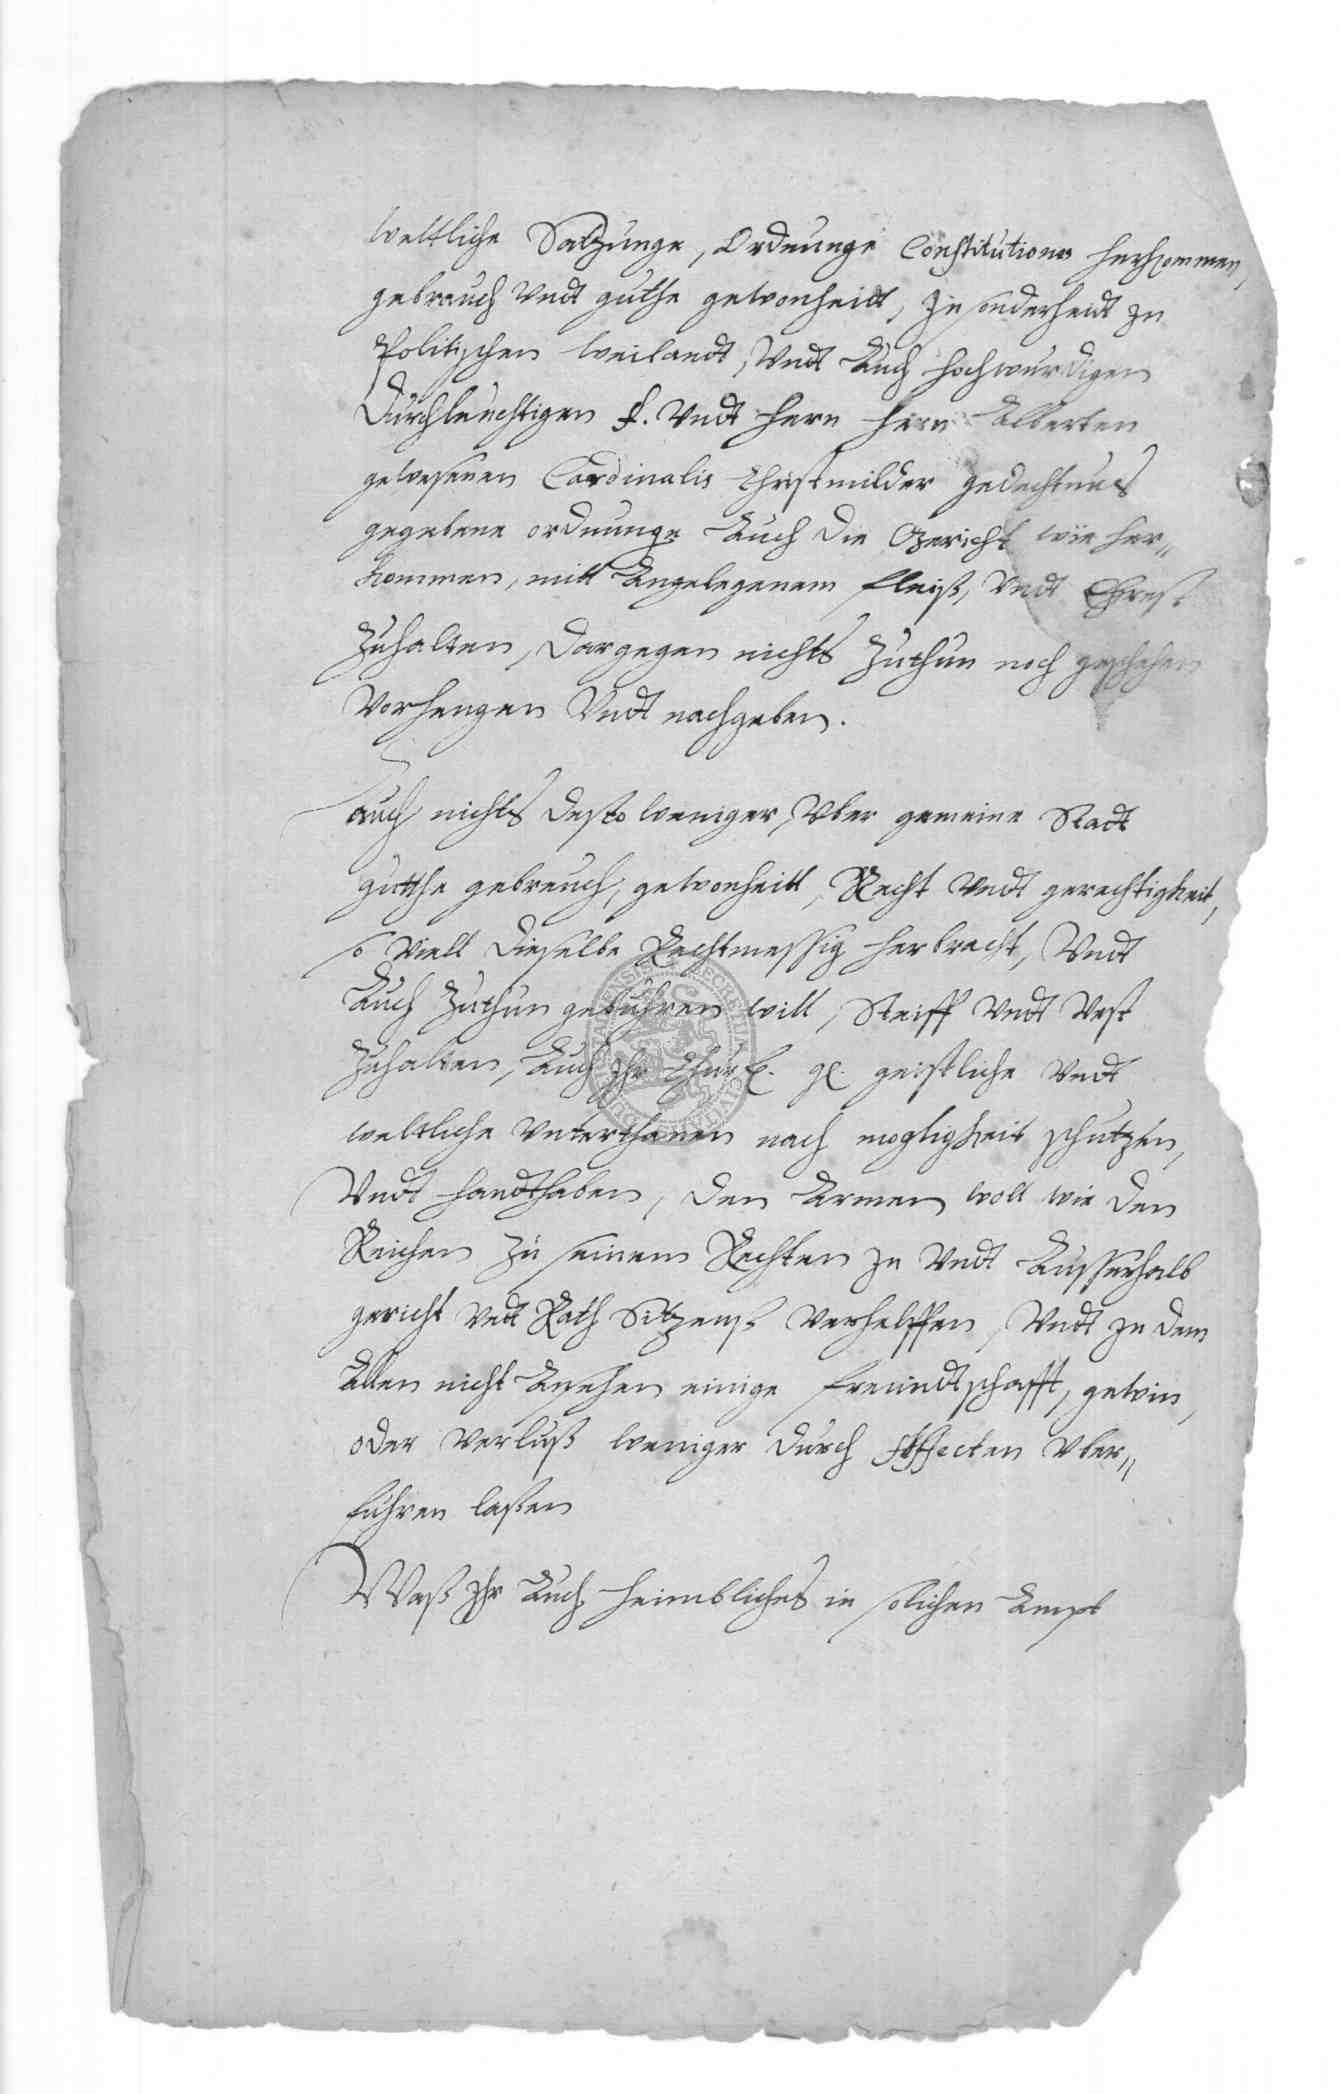 weltliche Satzunge, Ordnunge Constitutiones herkommen,
gebrauch Vndt guthe gewonheitt, in sonderheidt in
Politischen weilandt, Vndt Auch hochwurdigen
Durchleuchtigen f. Vndt Hern Hern Alberten
gewesenen Cardinalis Christmilder gedechtnus
gegebene ordnunge Auch die Gericht wie her„
kommen, mitt Angelegenem fleiß, Vndt Ernst
Zuhalten, Dargegen nichts Zuthun noch geschehen
Vorhengen Vndt nachgeben.
Auch nichts desto weniger, Vber gemeine Stadt
gutthe gebreuch, gewonheitt, Recht Vndt gerechtigkeit,
so Viell dieselbe Rechtmessig herbracht, Vndt
Auch Zuthun gebuhren will, Steiff Vndt Vest
Zuhalten, Auch Ihr Churf. gl. geistliche Vndt
weltliche Vnterthanen nach mogligkeit schutzen,
Vndt handthaben, den Armen woll wie den
Reichen Zu seinem Rechten in Vndt Ausserhalb
gericht Vndt Rath Sitzens Verhelffen, Vndt in dem
Allen nicht Ansehen einige freundtschafft, gewin,
oder Verlust weniger durch Affecten Vber„
fuhren laßen
Waß Ihr Auch heimbliches in solichen Ampt